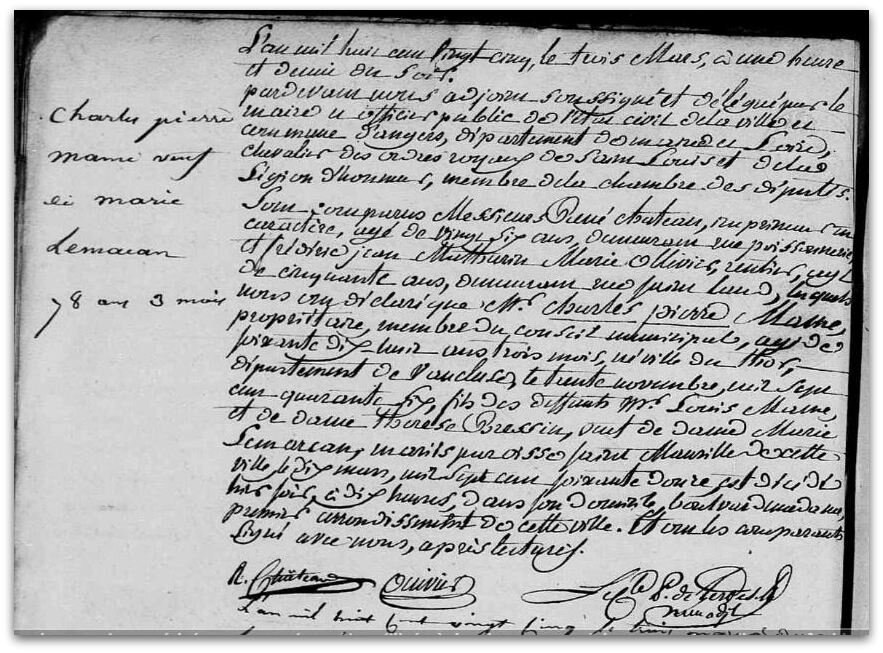 Charles pierre
mame veuf
de marie
Lemarcan
78 ans 3 mois
L'an mil huit cent vingt cinq, le trois Mars, à une heure
et demie du soir.
pardevant nous adjoint soussigné et délégué par le
maire et officier public de l'état civil de la ville et
commune d'angers, département de maine et Loire,
chevalier des ordres royaux de Saint Louis et de la
Légion d'honneur, membre de la chambre des députés.
Sont comparus Messieurs René chateau, imprimeur en
caractère, agé de vingt six ans, demeurant rue poissonnerie
et jean Mathurin Marie Ollivier, rentier, agé
de cinquante ans, demeurant rue saint Laud, lesquels
nous ont déclaré que Mr. Charles pierre Mame,
propriétaire, membre du conseil municipal, agé de
soixante dix huit ans trois mois, né ville du thor,
département de Vaucluse, le trente novembre, mil sept
cent quarante six, fils des deffunts Mr. Louis Mame,
et de dame therese Bressin, veuf de dame Marie
Lemarcan, mariés paroisse saint Maurille de cette
ville, le dix mars, mil sept cent soixante douze, est décédé
hier soir, à dix heures, dans son domicile,
premier arrondissement de cette ville. Et ont les comparants
signé avec nous, après lecture.
R. Château Ollivier
L'an mil huit cent vingt cinq le trois